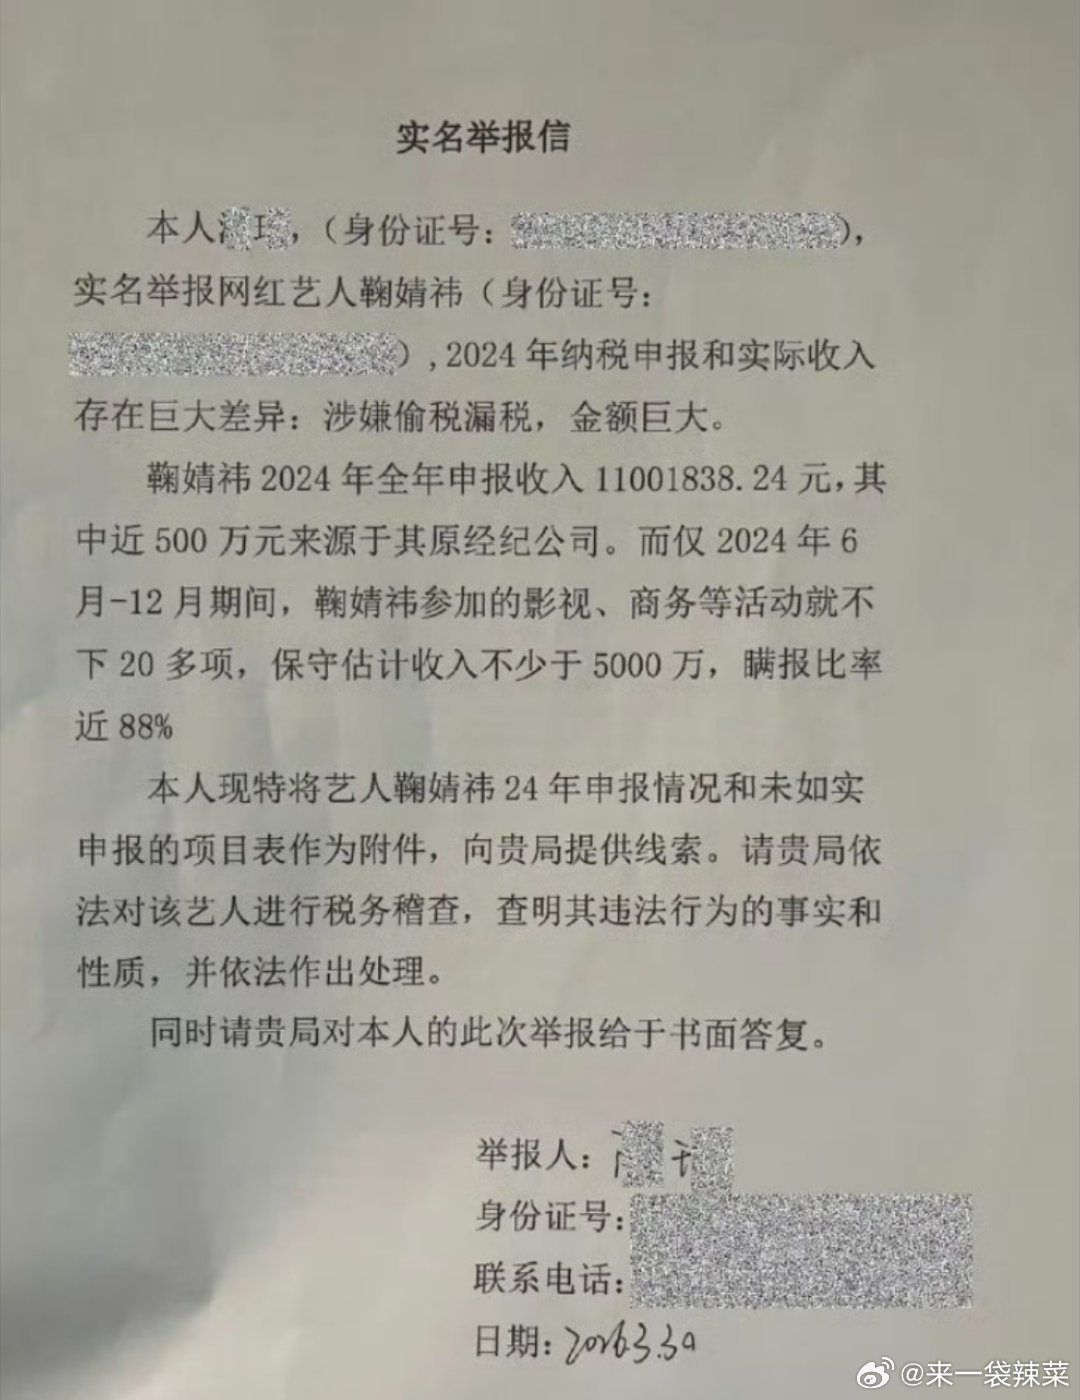 实名举报信
本人，（身份证号：），
实名举报网红艺人鞠婧祎（身份证号：
）,2024年纳税申报和实际收入
存在巨大差异：涉嫌偷税漏税，金额巨大。
鞠婧祎2024年全年申报收入11001838.24元，其
中近500万元来源于其原经纪公司。而仅2024年6
月-12月期间，鞠婧祎参加的影视、商务等活动就不
下20多项，保守估计收入不少于5000万，瞒报比率
近88%
本人现特将艺人鞠婧祎24年申报情况和未如实
申报的项目表作为附件，向贵局提供线索。请贵局依
法对该艺人进行税务稽查，查明其违法行为的事实和
性质，并依法作出处理。
同时请贵局对本人的此次举报给于书面答复。
举报人：
身份证号：
联系电话：
日期：2026.3.30
@来一袋辣菜